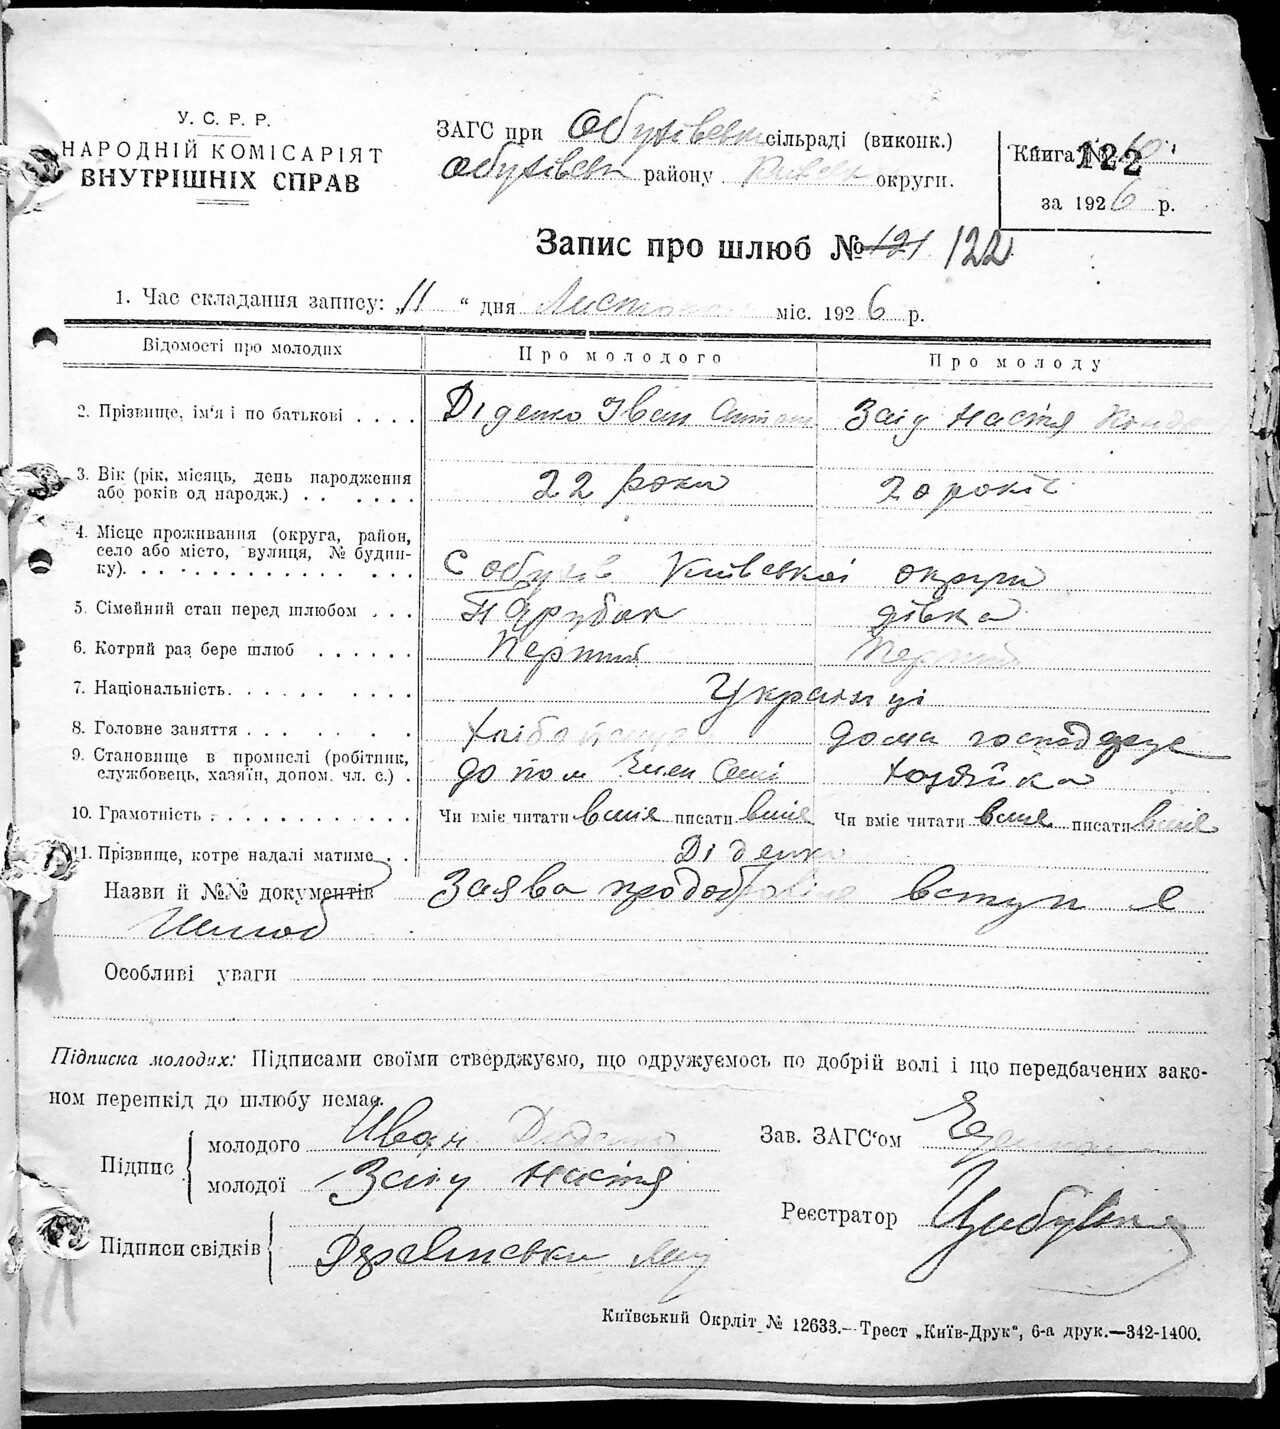 У. С. Р. Р.
НАРОДНІЙ КОМІСАРІЯТ
ВНУТРІШНІХ СПРАВ
ЗАГС при Обухівськ сільраді (виконк.)
Обухівськ району Київськ округи.
Книга № 122
за 1926 р.
Запис про шлюб № 121 122
1. Час складання запису: „11 “ дня Листопада міс. 1926 р.
Відомості про молодих Про молодого Про молоду
2. Прізвище, ім'я і по батькові . . . . Діденко Іван Антон Заїц Настя Кондр
3. Вік (рік, місяць, день народження
або років од народж.) . . . . . . 22 роки 20 років
4. Місце проживання (округа, район,
село або місто, вулиця, № будин-
ку). . . . . . . . . . . . . . . С Обухів Київської округи
5. Сімейний стан перед шлюбом . . . Парубок дівка
6. Котрий раз бере шлюб . . . . . . Перший Перший
7. Національність. . . . . . . . . Українці
8. Головне заняття . . . . . . . . Хлібо дома господарує
9. Становище в промислі (робітник,
службовець, хазяїн, допом. чл. с.) . допом Член Семї Хазяйка
10. Грамотність . . . . . . . . . . . Чи вміє читати вміє писати вміє Чи вміє читати вміє писати вміє
11. Прізвище, котре надалі матиме . . Діденко
Назви й №№ документів Заява про вступ в
Шлюб
Особливі уваги
Підписка молодих: Підписами своїми стверджуємо, що одружуємось по добрій волі і що передбачених зако-
ном перешкід до шлюбу немає.
Підпис { молодого Иван Диденко
молодої Заіц Настя
Зав. ЗАГС'ом
Реєстратор
Підписи свідків {
Київський Окрліт № 12633.—Трест „Київ-Друк“, 6-а друк.—342-1400.